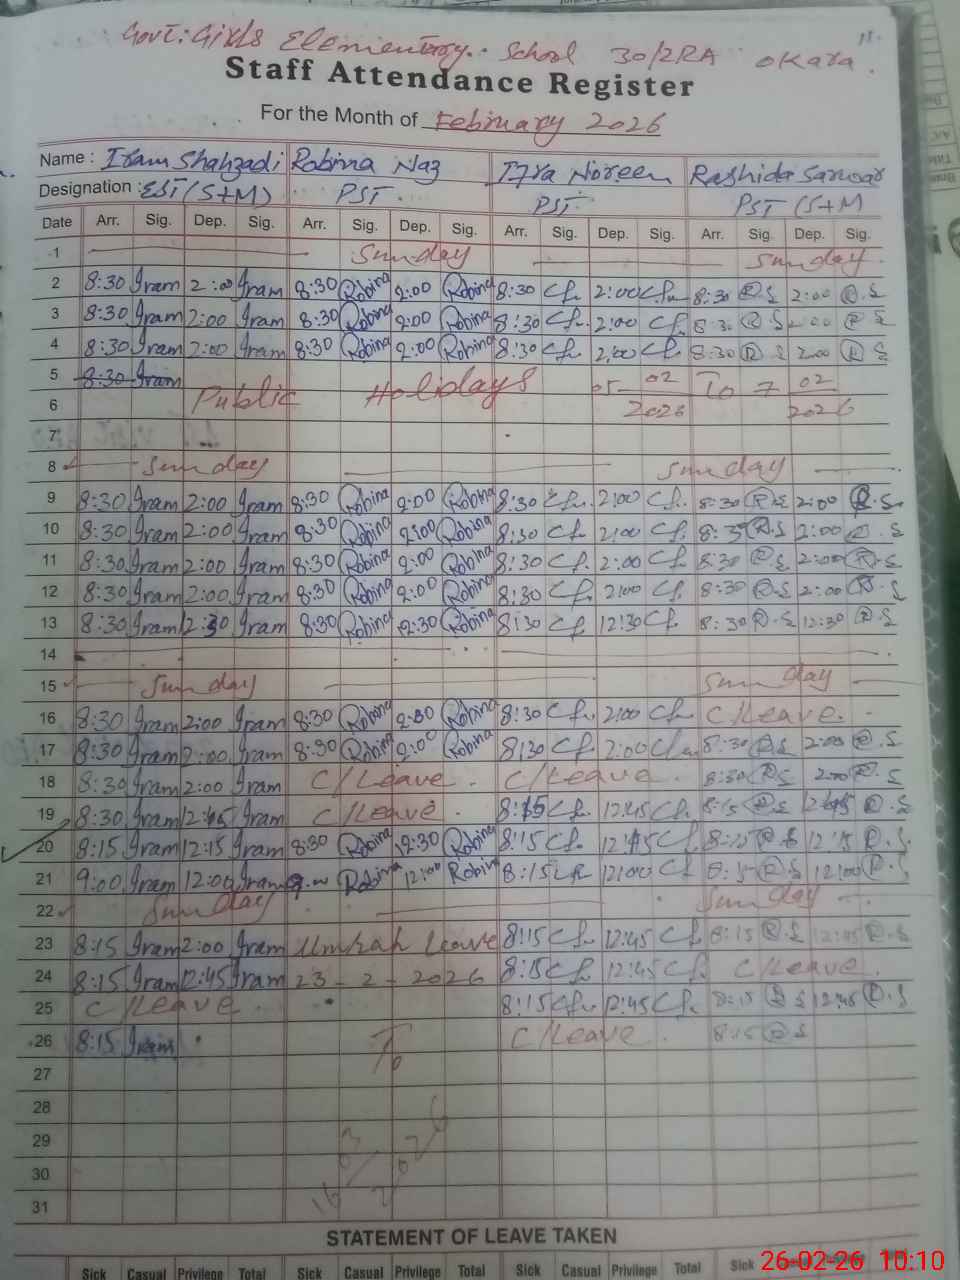 Govt: Girls Elementary. School 30/2RA Okara.
Staff Attendance Register
For the Month of February 2026
Name : Iram Shahzadi Robina Naz Iqra Noreen Rashida Sarwar
Designation : EST (S+M) PST. PST. PST (S+M
Date Arr. Sig. Dep. Sig. Arr. Sig. Dep. Sig. Arr. Sig. Dep. Sig. Arr. Sig. Dep. Sig.
1 Sunday Sunday
2 8:30 Iram 2:00 Iram 8:30 Robina 2:00 Robina 8:30 2:00 8:30 R.S 2:00 R.S
3 8:30 Iram 2:00 Iram 8:30 Robina 2:00 Robina 8:30 2:00 8:30 R.S 2:00 R S
4 8:30 Iram 2:00 Iram 8:30 Robina 2:00 Robina 8:30 2:00 8:30 R S 2:00 R S
5 8:30 Iram
6 Public Holidays 05-02/2026 To 7 02/2026
7
8 Sunday Sunday
9 8:30 Iram 2:00 Iram 8:30 Robina 2:00 Robina 8:30 2:00 8:30 R.S 2:00 R.S
10 8:30 Iram 2:00 Iram 8:30 Robina 2:00 Robina 8:30 2:00 R.S 2:00 R.S
11 8:30 Iram 2:00 Iram 8:30 Robina 2:00 Robina 8:30 2:00 8:30 R.S 2:00 R.S
12 8:30 Iram 2:00 Iram 8:30 Robina 2:00 Robina 8:30 2:00 8:30 R.S 2:00 R.S
13 8:30 Iram 12:30 Iram 8:30 Robina 12:30 Robina 8:30 12:30 8:30 R.S 12:30 R.S
14
15 Sunday Sunday
16 8:30 Iram 2:00 Iram 8:30 Robina 2:00 Robina 8:30 2:00 C/Leave.
17 8:30 Iram 2:00 Iram 8:30 Robina 2:00 Robina 8:30 2:00 8:30 R.S 2:00 R.S
18 8:30 Iram 2:00 Iram C/Leave. C/Leave. 8:30 R.S 2:00 R.S
19 8:30 Iram 12:45 Iram C/Leave. 8:15 12:45 8:15 R.S 12:45 R.S
20 8:15 Iram 12:15 Iram 8:30 Robina 12:30 Robina 8:15 8:15 R.S 12:15 R.S
21 9:00 Iram 12:00 Iram Robina 12:00 Robina 8:15 12:00 R.S 12:00 R.S
22 Sunday Sunday
23 8:15 Iram 2:00 Iram Umrah Leave 8:15 12:45 8:15 R.S 12:45 R.S
24 8:15 Iram 12:45 Iram 23-2-2026 8:15 12:45 C/Leave.
25 C/Leave. 8:15 12:45 8:15 R.S 12:45 R.S
26 8:15 Iram To C/Leave. 8:15 R.S
27
28
29
30 16/03/2026
31
STATEMENT OF LEAVE TAKEN
Sick Casual Privilege Total Sick Casual Privilege Total Sick Casual Privilege Total Sick
26-02-26 10:10